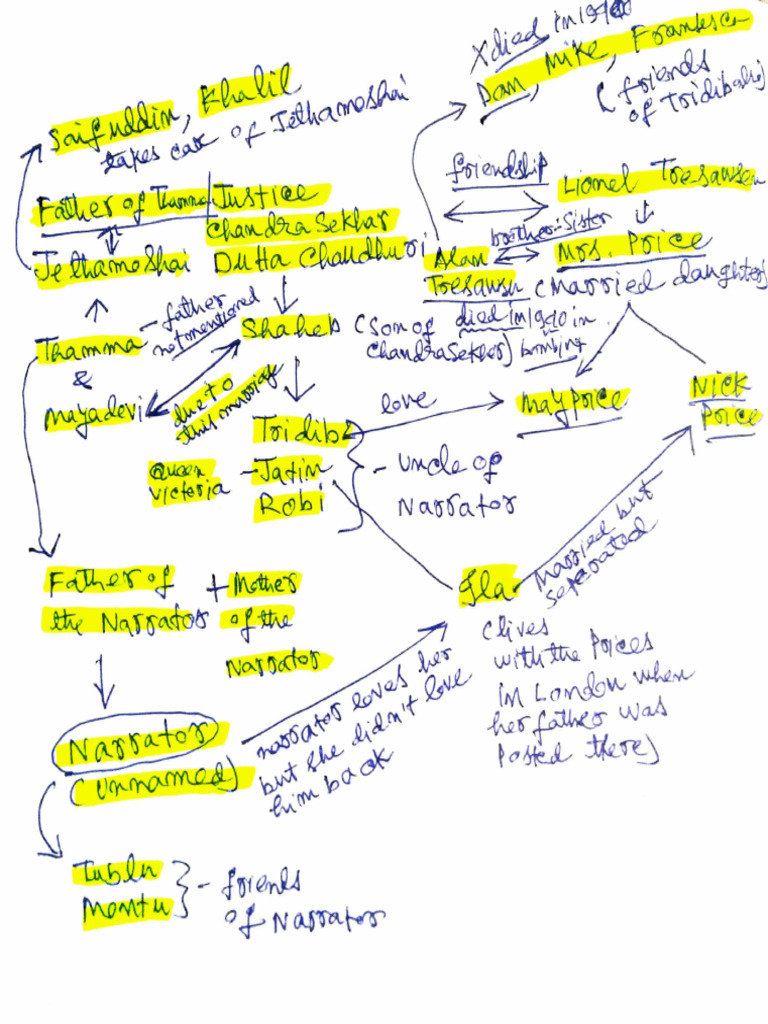 X died in 1940
Dan, Mike, Francesca
(friends
of Tridib
Saifuddin, Khalil
takes care of Jethamoshai
friendship
Lionel Tresawsen
Father of Thamma
Justice
Chandrasekhar
Dutta Chaudhuri
Jethamoshai
brother-sister
Alan
Tresawsen
Mrs. Price
(Married daughter)
died in 1940 in
bombing
Thamma
&
Mayadevi
- father
not mentioned
Shaheb (son of
Chandrasekhar)
due to
this marriage
love
May Price
Nick
Price
Tridib
Queen
Victoria
- Jatin
Robi
- Uncle of
Narrator
Father of
the Narrator
+ Mother
of the
Narrator
Ila
Married but
separated
(lives
with the Prices
in London when
her father was
posted there)
Narrator
(unnamed)
narrator loves her
but she didn't love
him back
Tublu
Montu
- friends
of Narrator